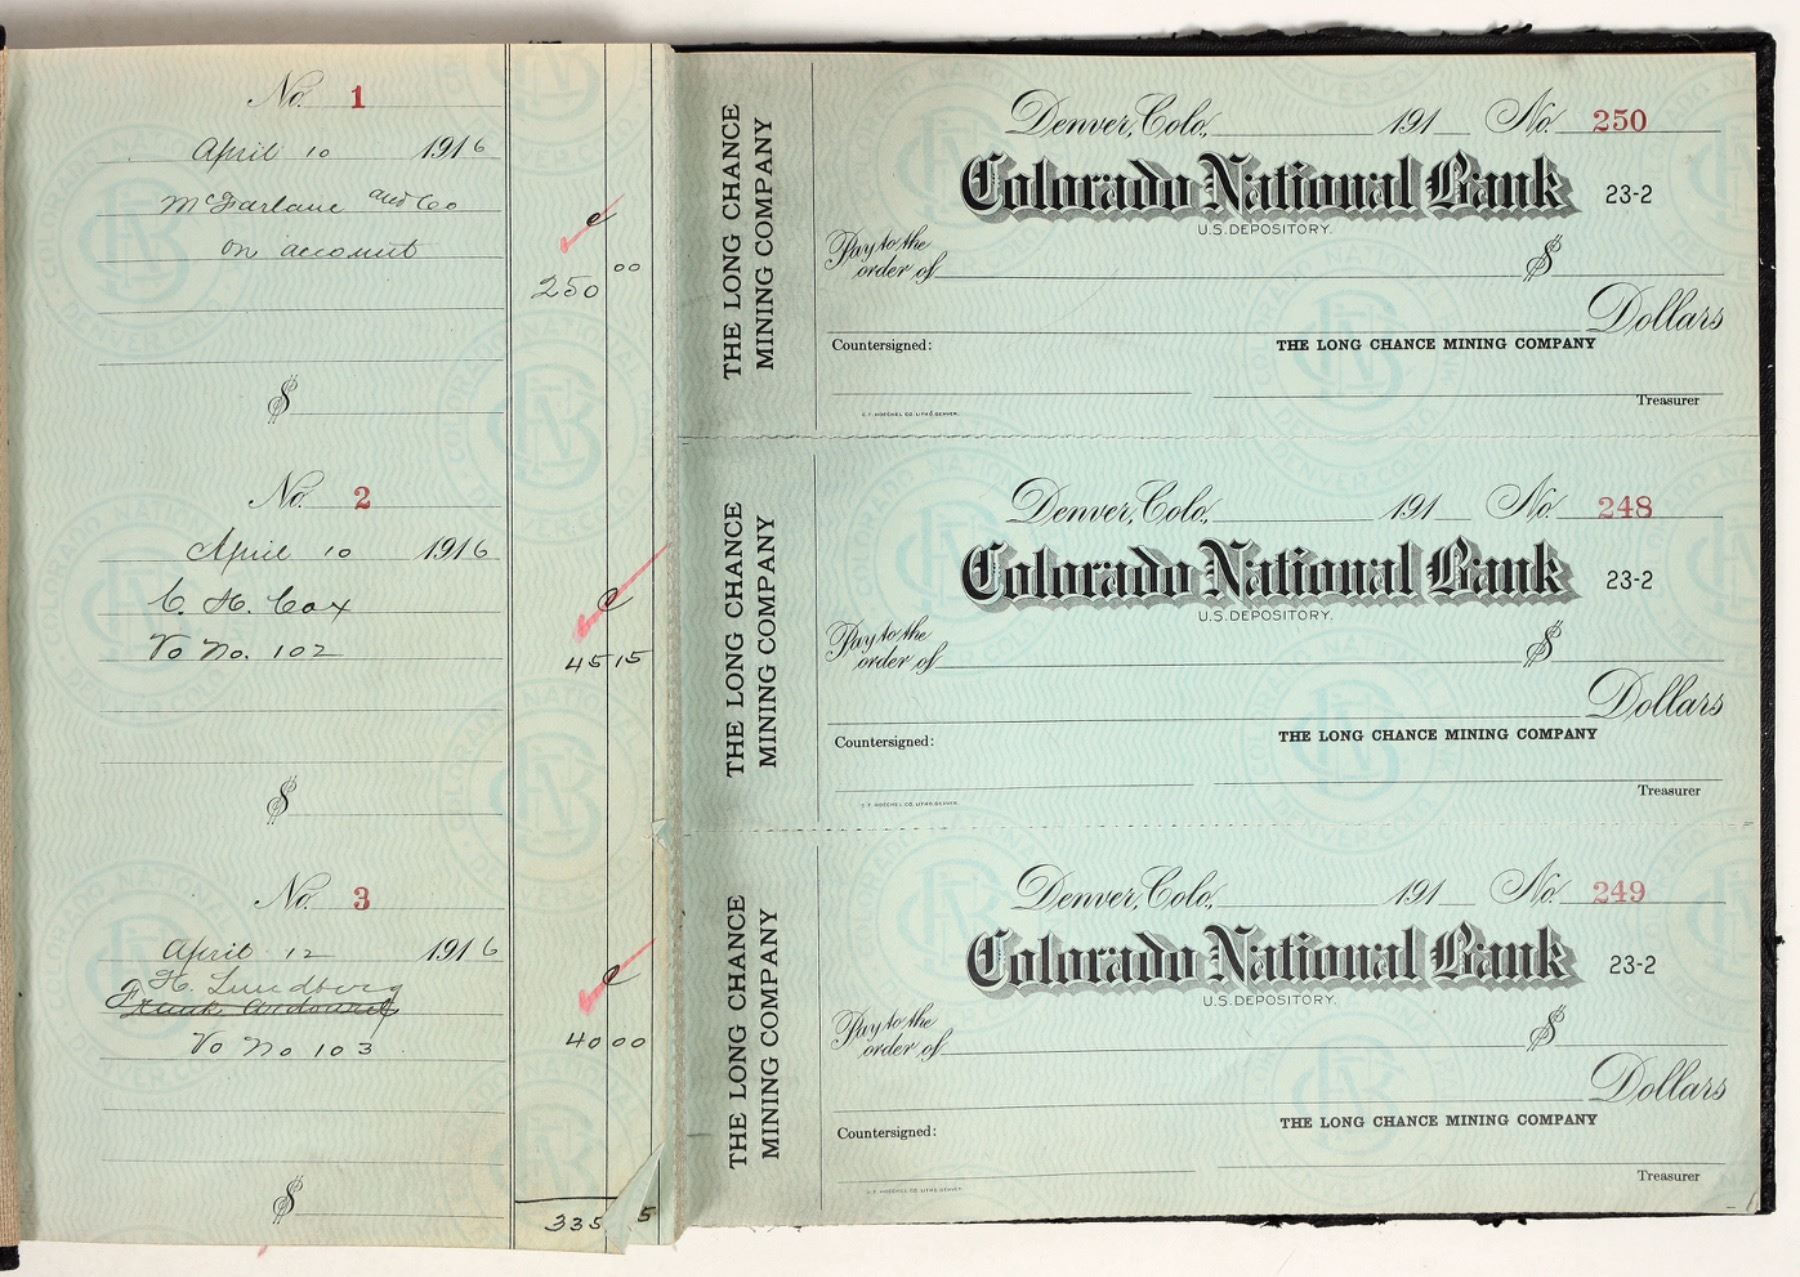 No. 1
April 10 1916
McFarlane and Co
on account
250 00
$
No. 2
April 10 1916
C. H. Cox
Vo No. 102
45 15
$
No. 3
April 12 1916
H. Lundberg
Frank
Vo No 103
40 00
$
335 5
THE LONG CHANCE
MINING COMPANY
Denver, Colo., 191 No. 250
Colorado National Bank 23-2
U.S. DEPOSITORY.
Pay to the
order of $
Dollars
Countersigned: THE LONG CHANCE MINING COMPANY
Treasurer
C. F. HOECKEL CO. LITHO. DENVER.
THE LONG CHANCE
MINING COMPANY
Denver, Colo., 191 No. 248
Colorado National Bank 23-2
U.S. DEPOSITORY.
Pay to the
order of $
Dollars
Countersigned: THE LONG CHANCE MINING COMPANY
Treasurer
C. F. HOECKEL CO. LITHO. DENVER.
THE LONG CHANCE
MINING COMPANY
Denver, Colo., 191 No. 249
Colorado National Bank 23-2
U.S. DEPOSITORY.
Pay to the
order of $
Dollars
Countersigned: THE LONG CHANCE MINING COMPANY
Treasurer
C. F. HOECKEL CO. LITHO. DENVER.